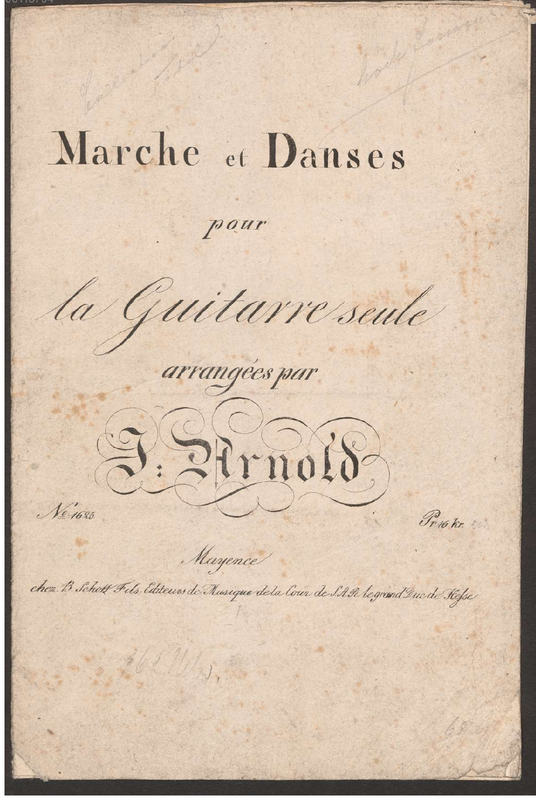 Marche et Danses
pour
la Guitarre seule
arrangées par
J: Arnold
No. 1625
Pr. 16 kr.
Mayence
chez B Schott Fils, Editeurs de Musique de la Cour de S.A.R. le grand Duc de Hesse